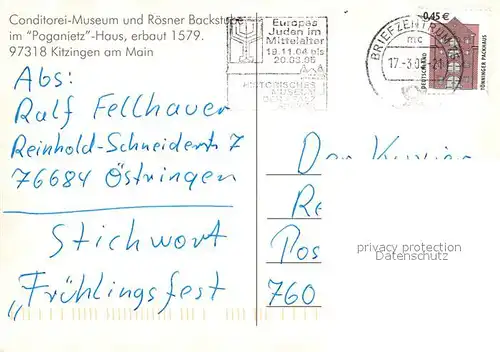 Conditorei-Museum und Rösner Backstube
im "Poganietz"-Haus, erbaut 1579.
97318 Kitzingen am Main
Abs:
Ralf Fellhauer
Reinhold-Schneiderstr 7
76684 Östringen
Stichwort
"Frühlingsfest
Europas
Juden im
Mittelalter
19.11.04 bis
20.03.05
HISTORISCHES
MUSEUM
BRIEFZENTRUM
mc
17.-3.0
-21
0,45 €
DEUTSCHLAND
TÖNNINGER PACKHAUS
Der Kurier
Re
Pos
760
privacy protection
Datenschutz